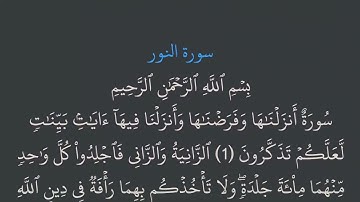 سورة النور
بِسْمِ ٱللَّهِ ٱلرَّحْمَٰنِ ٱلرَّحِيمِ
سُورَةٌ أَنزَلْنَٰهَا وَفَرَضْنَٰهَا وَأَنزَلْنَا فِيهَآ ءَايَٰتٍۭ بَيِّنَٰتٍ
لَّعَلَّكُمْ تَذَكَّرُونَ (1) ٱلزَّانِيَةُ وَٱلزَّانِى فَٱجْلِدُوا۟ كُلَّ وَٰحِدٍ
مِّنْهُمَا مِا۟ئَةَ جَلْدَةٍ ۖ وَلَا تَأْخُذْكُم بِهِمَا رَأْفَةٌ فِى دِينِ ٱللَّهِ